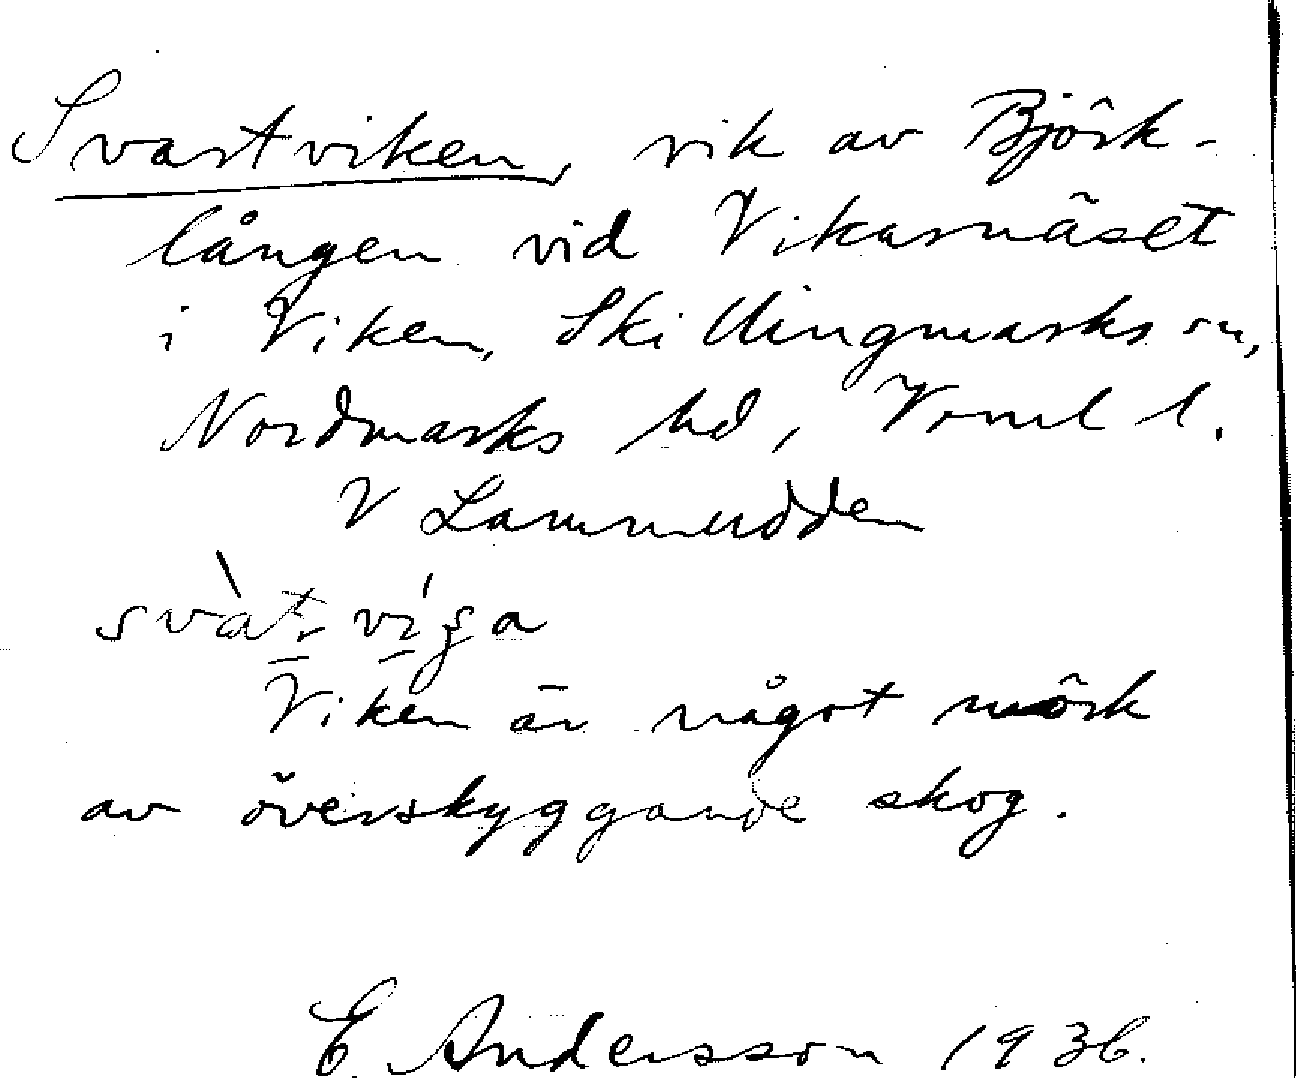 Svartviken, vik av Björk-
lången vid Vikarnäset
i Viken, Skillingmarks sn,
Nordmarks hd, Vrml l.
V Lammudden
svàt- víga
Viken är något mörk
av överskyggande skog.
E. Andersson 1936.